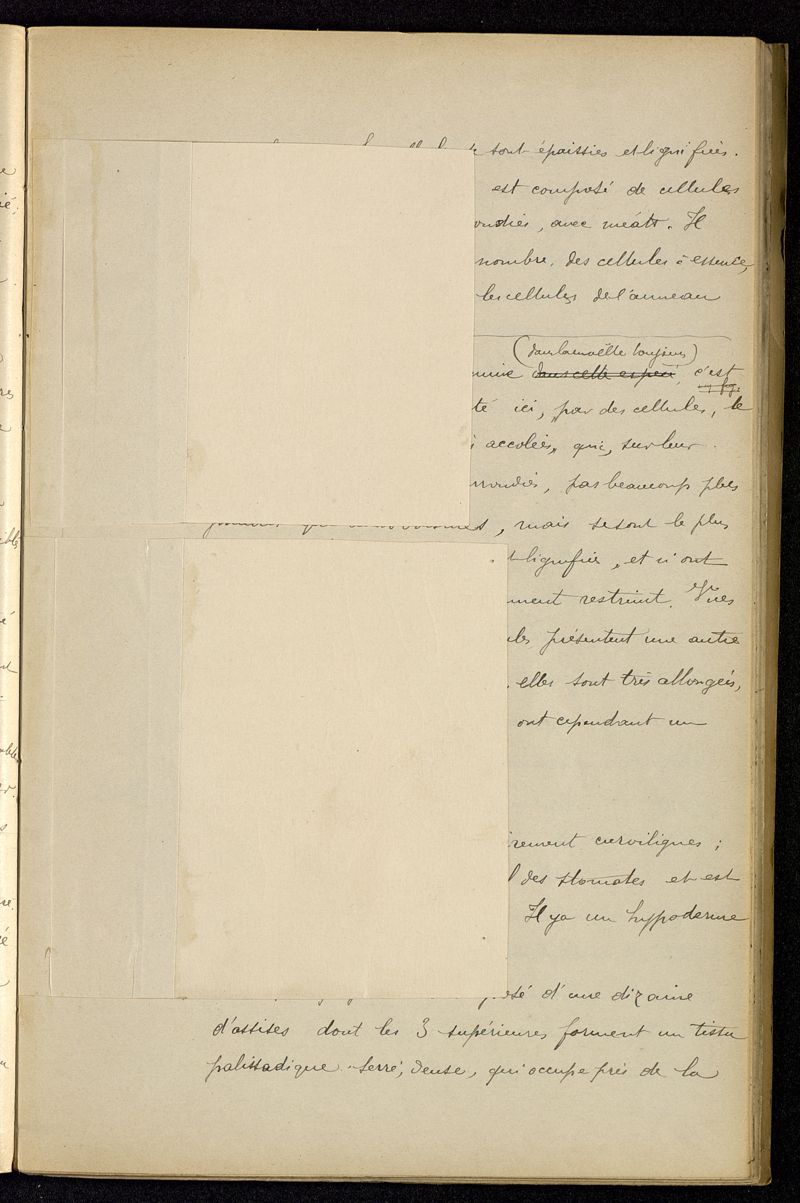 sont épaissies et lignifiées.
est composé de cellules
ondies, avec méats. Il
nombre, des cellules à essence,
les cellules de l'anneau
(dans la moëlle toujours)
dans cette espèce, c'est
té ici, par des cellules, le
accolées, qui, sur leur
arrondies, pas beaucoup plus
mais se sont le plus
lignifiées, et n'ont
ment restreint. Vues
les présentent une autre
elles sont très allongées,
ont cependant un
rement curvilignes ;
des stomates et est
Il y a un hypoderme
posé d'une dizaine
d'assises dont les 3 supérieures forment un tissu
palissadique serré, dense, qui occupe près de la